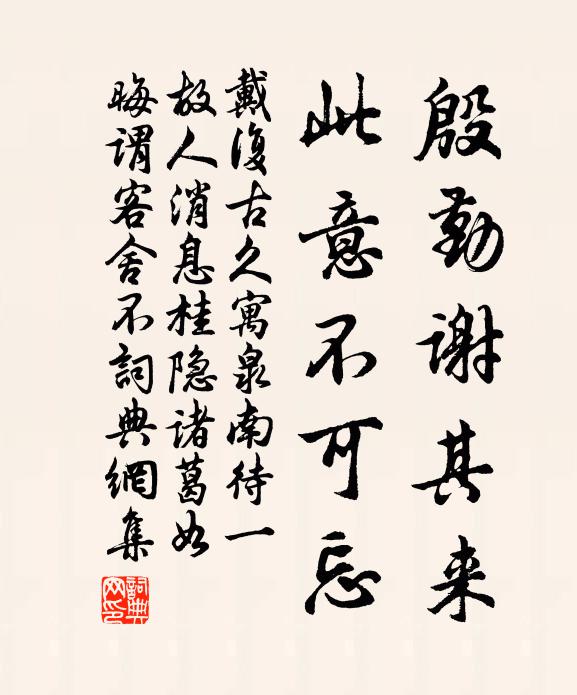 殷勤謝其来
此意不可忘
戴復古久寓泉南待一
故人消息桂隐诸葛如
晦謂客舍不詞典網集
詞典
网印